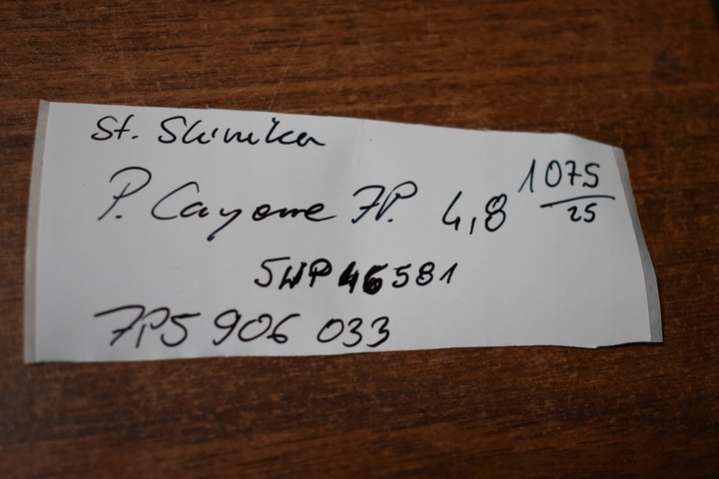 St. Silnika
P. Cayenne 7P. 4,8 1075/25
5WP46581
7P5 906 033